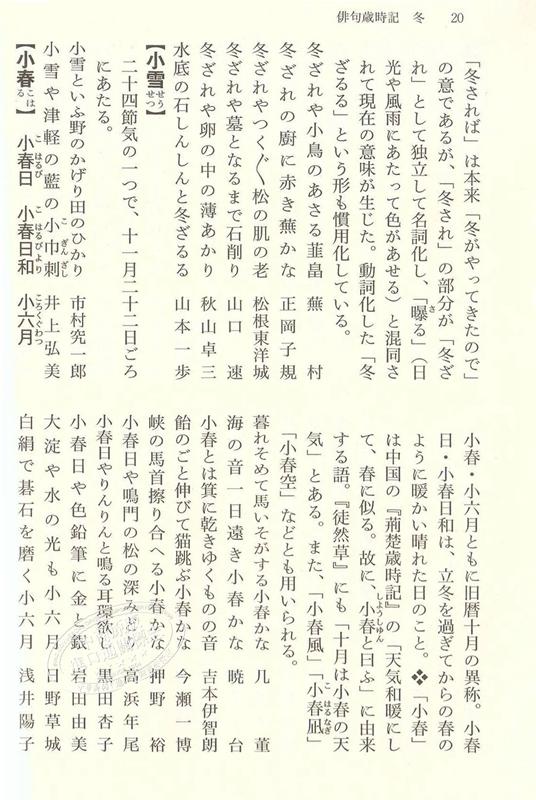 俳句歳時記 冬 20
「冬されば」は本来「冬がやってきたので」
の意であるが、「冬され」の部分が「冬ざ
れ」として独立して名詞化し、「曝る」（日
光や風雨にあたって色があせる）と混同さ
れて現在の意味が生じた。動詞化した「冬
ざるる」という形も慣用化している。
冬ざれや小鳥のあさる韮畠 蕪村
冬ざれの厨に赤き蕪かな 正岡子規
冬ざれやつく〴〵松の肌の老 松根東洋城
冬ざれや墓となるまで石削り 山口速
冬ざれや卵の中の薄あかり 秋山卓三
水底の石しんしんと冬ざるる 山本一歩
【小雪】
二十四節気の一つで、十一月二十二日ごろ
にあたる。
小雪といふ野のかげり田のひかり 市村究一郎
小雪や津軽の藍の小巾刺 井上弘美
【小春】 小春日 小春日和 小六月
小春・小六月ともに旧暦十月の異称。小春
日・小春日和は、立冬を過ぎてからの春の
ように暖かい晴れた日のこと。❖「小春」
は中国の『荊楚歳時記』の「天気和暖にし
て、春に似る。故に、小春と曰ふ」に由来
する語。『徒然草』にも「十月は小春の天
気」とある。また、「小春風」「小春凪」
「小春空」などとも用いられる。
暮れそめて馬いそがする小春かな 几董
海の音一日遠き小春かな 暁台
小春とは箕に乾きゆくものの音 吉本伊智朗
飴のごと伸びて猫跳ぶ小春かな 今瀬一博
峡の馬首擦り合へる小春かな 押野裕
小春日や鳴門の松の深みどり 高浜年尾
小春日やりんりんと鳴る耳環欲し 黒田杏子
小春日や色鉛筆に金と銀 岩田由美
大淀や水の光も小六月 日野草城
白絹で碁石を磨く小六月 浅井陽子